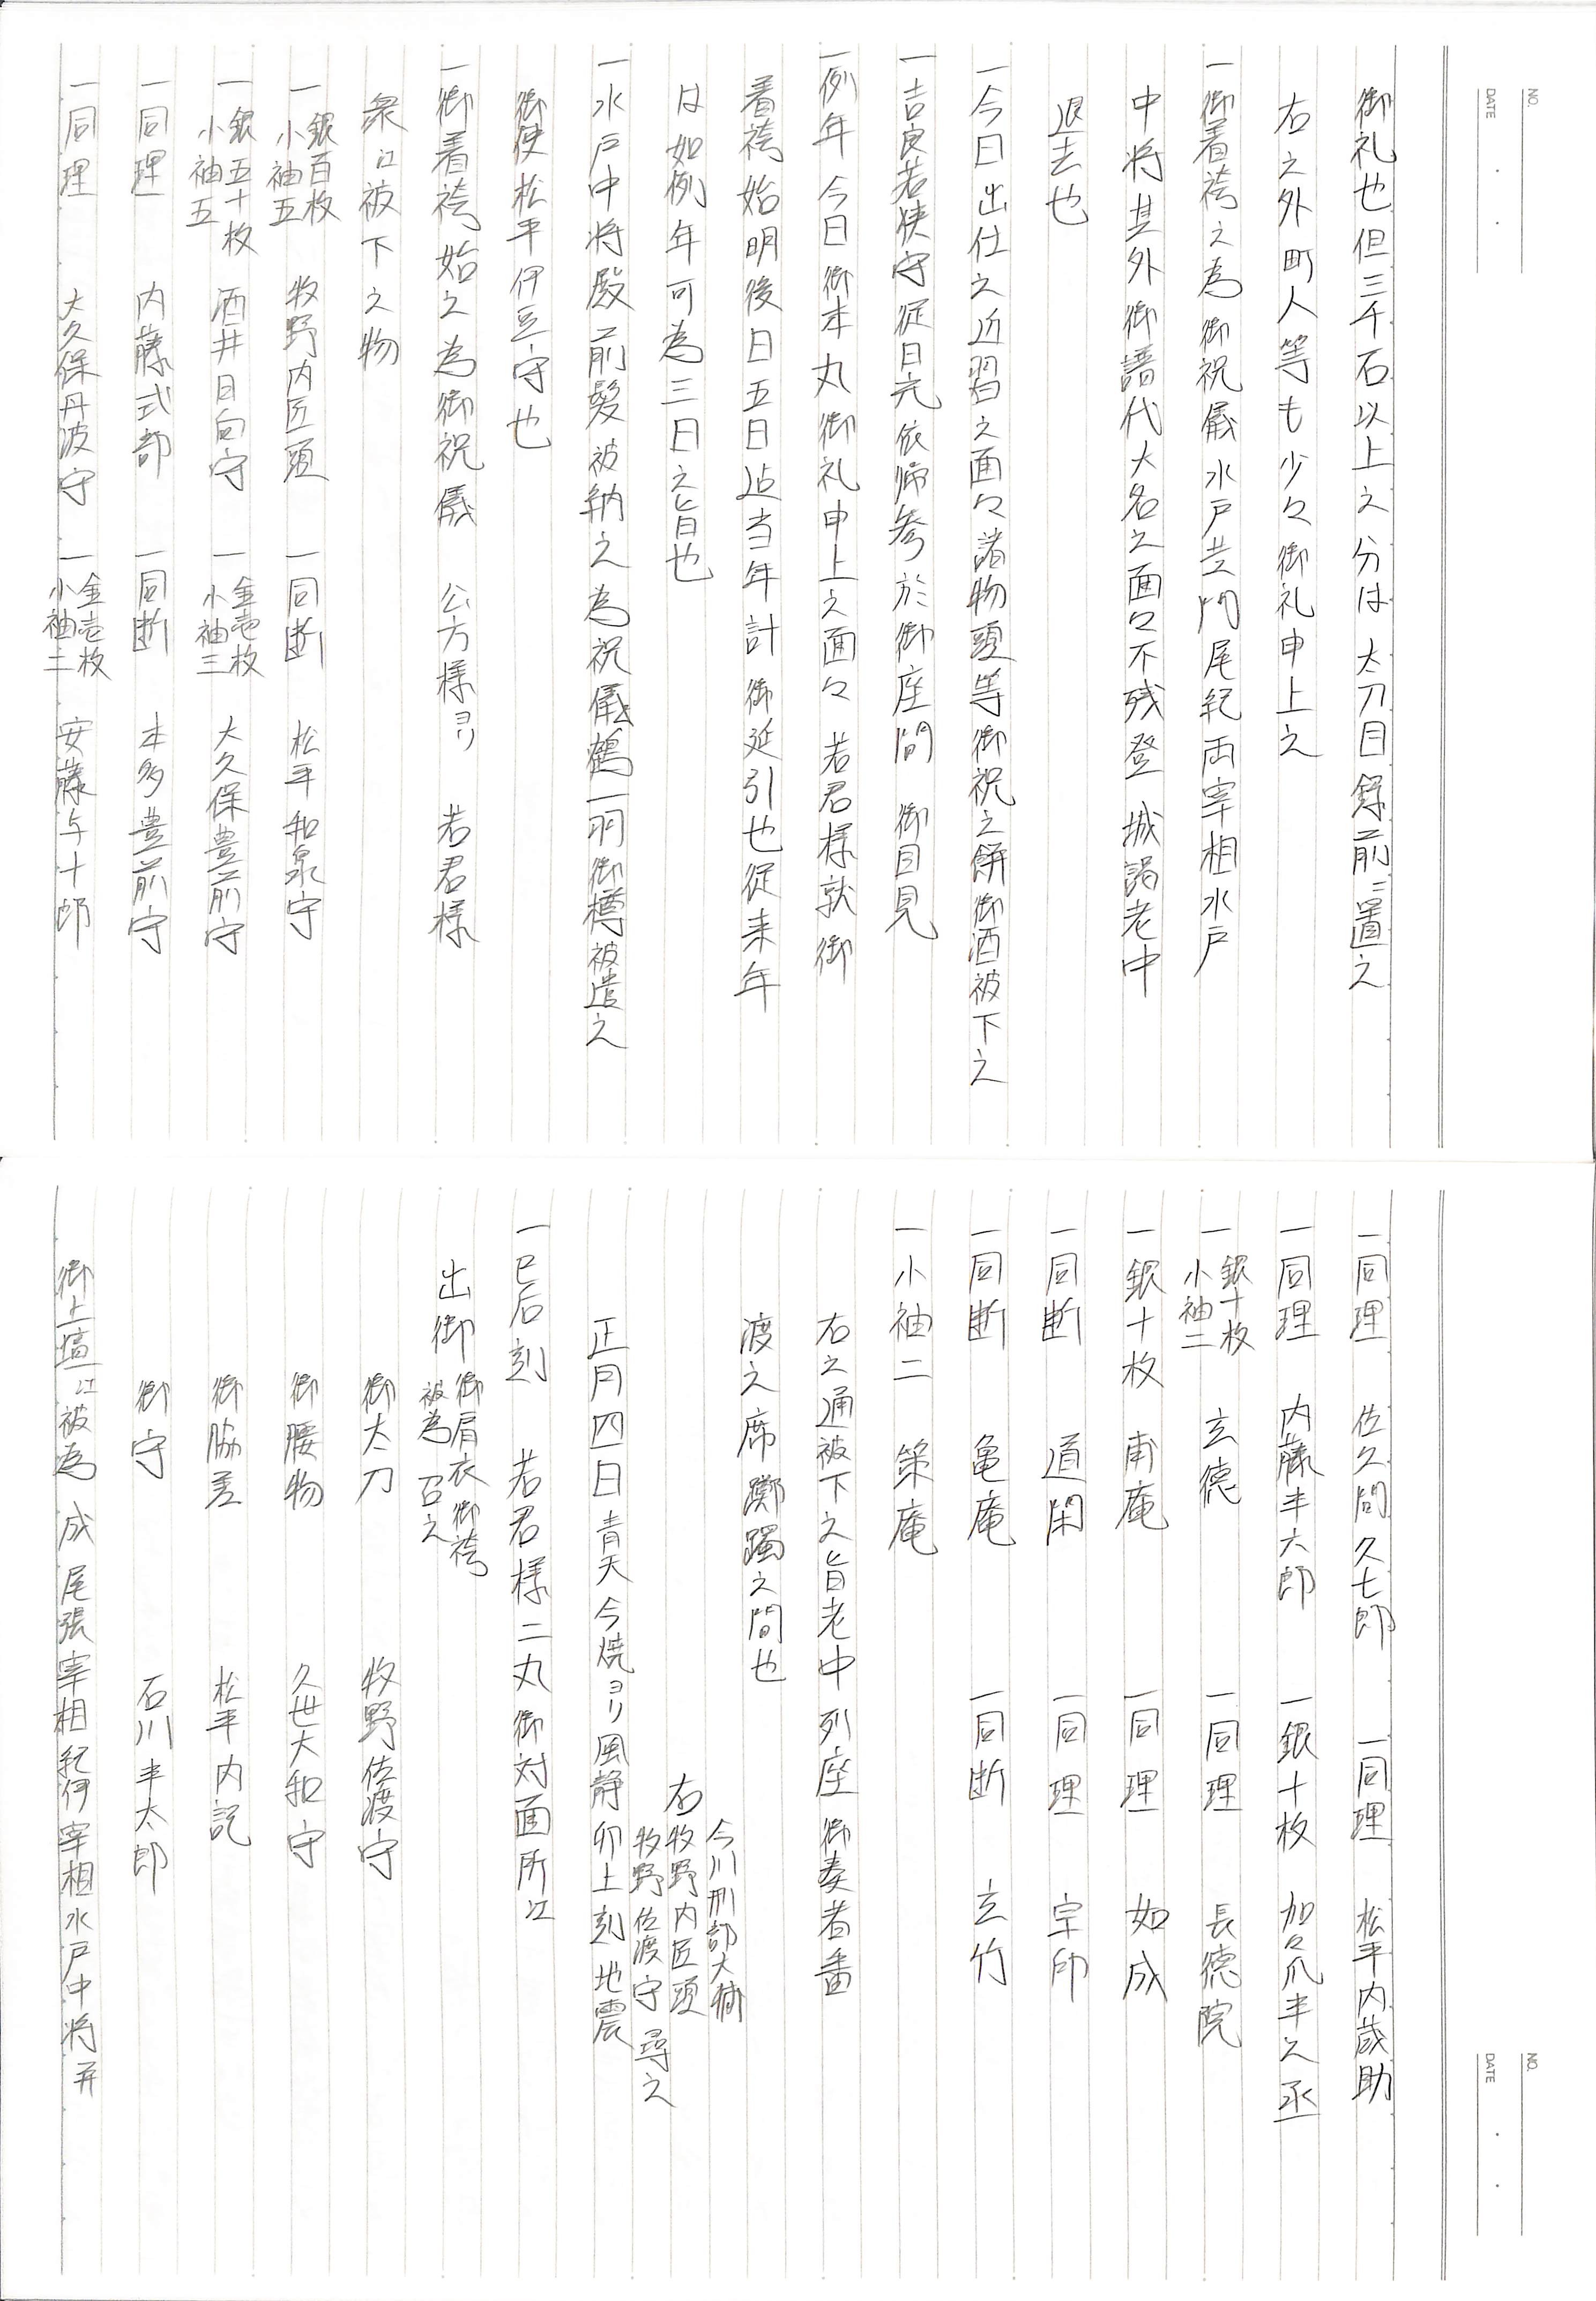 NO.
DATE
御礼也但三千石以上之分は太刀目録前ニ置之
右之外町人等も少々御礼申上之
一御着袴之為御祝儀水戸黄門尾紀両宰相水戸
中将其外御譜代大名之面々不残登 城謁老中
退去也
一今日出仕之近習之面々諸物頭等御祝之餅御酒被下之
一吉良若狭守従日光依帰参於御座間 御目見
一例年今日御本丸御礼申上之面々 若君様就御
着袴始明後日五日迄当年計御延引也従来年
は如例年可為三日之旨也
一水戸中将殿前髪被納之為祝儀鶴一羽御樽被遣之
御使松平伊豆守也
一御着袴始之為御祝儀 公方様ヨリ 若君様
衆江被下之物
一銀百枚 小袖五 牧野内匠頭 一同断 松平和泉守
一銀五十枚 小袖五 酒井日向守 一金壱枚 小袖三 大久保豊前守
一同理 内藤式部 一同断 本多豊前守
一同理 大久保丹波守 一金壱枚 小袖二 安藤与十郎
NO.
DATE
一同理 佐久間久七郎 一同理 松平内蔵助
一同理 内藤半六郎 一銀十枚 加々爪半之丞
一銀十枚 小袖二 玄徳 一同理 長徳院
一銀十枚 甫庵 一同理 如成
一同断 道閑 一同理 宗印
一同断 亀庵 一同断 玄竹
一小袖二 策庵
右之通被下之旨老中列座御奏者番
渡之席躑躅之間也
今川刑部大輔
右牧野内匠頭
牧野佐渡守 尋之
正月四日青天今焼ヨリ風静卯上刻地震
一巳后刻 若君様二丸御対面所江
出御 御肩衣御袴 被為 召之
御太刀 牧野佐渡守
御腰物 久世大和守
御脇差 松平内記
御守 石川半太郎
御上壇江被為 成尾張宰相紀伊宰相水戸中将并